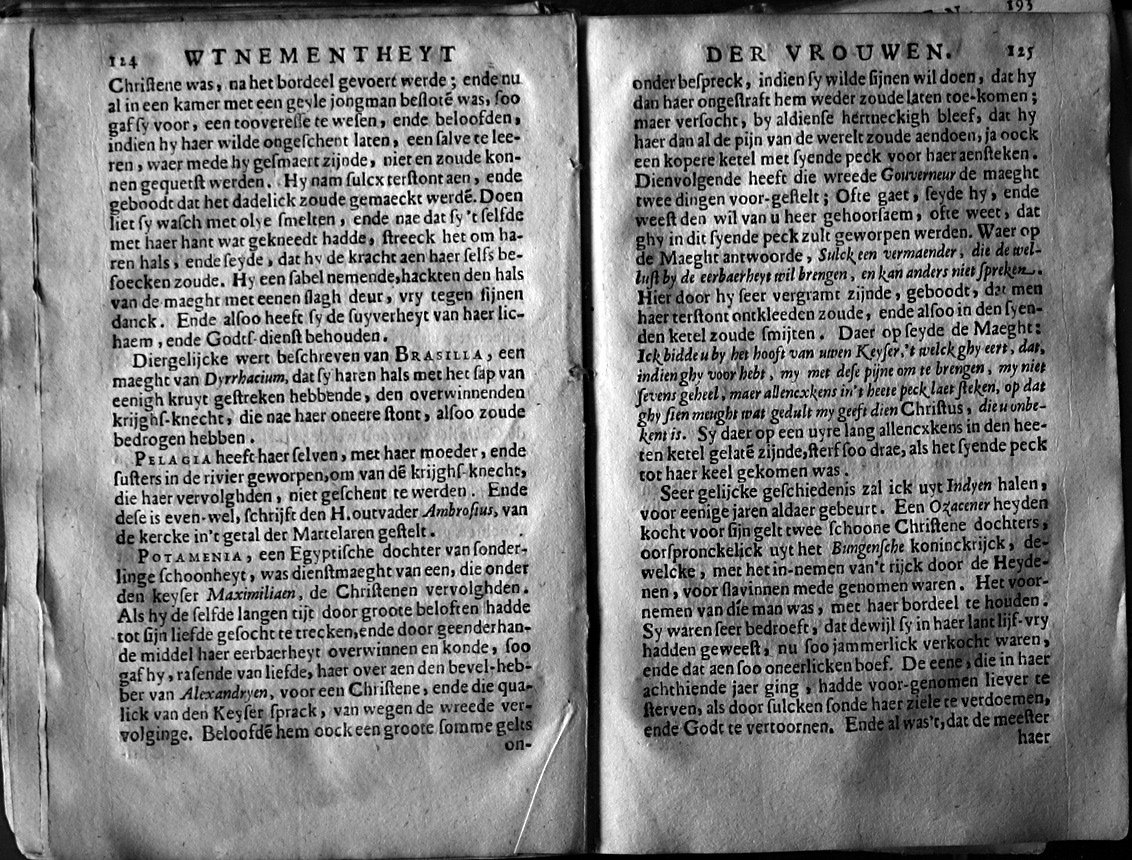 193
124 WTNEMENTHEYT
Chriſtene was, na het bordeel gevoert werde; ende nu
al in een kamer met een geyle jongman beſlotē was, ſoo
gaf ſy voor, een tooverеſſe te weſen, ende beloofden,
indien hy haer wilde ongeſchent laten, een ſalve te lee-
ren, waer mede hy geſmaert zijnde, niet en zoude kon-
nen gequetſt werden. Hy nam ſulcx terſtont aen, ende
geboodt dat het dadelick zoude gemaeckt werdē. Doen
liet ſy waſch met olye ſmelten, ende nae dat ſy 't ſelfde
met haer hant wat gekneedt hadde, ſtreeck het om ha-
ren hals, ende ſeyde, dat hy de kracht aen haer ſelfs be-
ſoecken zoude. Hy een ſabel nemende, hackten den hals
van de maeght met eenen ſlagh deur, vry tegen ſijnen
danck. Ende alſoo heeft ſy de ſuyverheyt van haer lic-
haem, ende Godts-dienſt behouden.
Diergelijcke wert beſchreven van BRASILLA, een
maeght van Dyrrhacium, dat ſy haren hals met het ſap van
eenigh kruyt geſtreken hebbende, den overwinnenden
krijghſ-knecht, die nae haer oneere ſtont, alſoo zoude
bedrogen hebben.
PELAGIA heeft haer ſelven, met haer moeder, ende
ſuſters in de rivier geworpen, om van dē krijghſ-knecht,
die haer vervolghden, niet geſchent te werden. Ende
deſe is even-wel, ſchrijft den H. outvader Ambroſius, van
de kercke in't getal der Martelaren geſtelt.
POTAMENIA, een Egyptiſche dochter van ſonder-
linge ſchoonheyt, was dienſtmaeght van een, die onder
den keyſer Maximiliaen, de Chriſtenen vervolghden.
Als hy de ſelfde langen tijt door groote beloften hadde
tot ſijn liefde geſocht te trecken, ende door geenderhan-
de middel haer eerbaerheyt overwinnen en konde, ſoo
gaf hy, raſende van liefde, haer over aen den bevel-heb-
ber van Alexandryen, voor een Chriſtene, ende die qua-
lick van den Keyſer ſprack, van wegen de wreede ver-
volginge. Beloofdē hem oock een groote ſomme gelts
on-
DER VROUWEN. 125
onder beſpreck, indien ſy wilde ſijnen wil doen, dat hy
dan haer ongeſtraft hem weder zoude laten toe-komen;
maer verſocht, by aldienſe hertneckigh bleef, dat hy
haer dan al de pijn van de werelt zoude aendoen, ja oock
een kopere ketel met ſyende peck voor haer aenſteken.
Dienvolgende heeft die wreede Gouverneur de maeght
twee dingen voor-geſtelt; Ofte gaet, ſeyde hy, ende
weeſt den wil van u heer gehoorſaem, ofte weet, dat
ghy in dit ſyende peck zult geworpen werden. Waer op
de Maeght antwoorde, Sulck een vermaender, die de wel-
luſt by de eerbaerheyt wil brengen, en kan anders niet ſpreken.
Hier door hy ſeer vergramt zijnde, geboodt, dat men
haer terſtont ontkleeden zoude, ende alſoo in den ſyen-
den ketel zoude ſmijten. Daer op ſeyde de Maeght:
Ick bidde u by het hooft van uwen Keyſer, 't welck ghy eert, dat,
indien ghy voor hebt, my met deſe pijne om te brengen, my niet
ſevens geheel, maer allencxkens in't heete peck laet ſteken, op dat
ghy ſien meught wat gedult my geeft dien Chriſtus, die u onbe-
kent is. Sy daer op een uyre lang allencxkens in den hee-
ten ketel gelatē zijnde, ſterf ſoo drae, als het ſyende peck
tot haer keel gekomen was.
Seer gelijcke geſchiedenis zal ick uyt Indyen halen,
voor eenige jaren aldaer gebeurt. Een Ozacener heyden
kocht voor ſijn gelt twee ſchoone Chriſtene dochters,
oorſpronckelick uyt het Bungenſche koninckrijck, de-
welcke, met het in-nemen van't rijck door de Heyde-
nen, voor ſlavinnen mede genomen waren. Het voor-
nemen van die man was, met haer bordeel te houden.
Sy waren ſeer bedroeft, dat dewijl ſy in haer lant lijf-vry
hadden geweeſt, nu ſoo jammerlick verkocht waren,
ende dat aen ſoo oneerlicken boef. De eene, die in haer
achthiende jaer ging, hadde voor-genomen liever te
ſterven, als door ſulcken ſonde haer ziele te verdoemen,
ende Godt te vertoornen. Ende al was't, dat de meeſter
haer